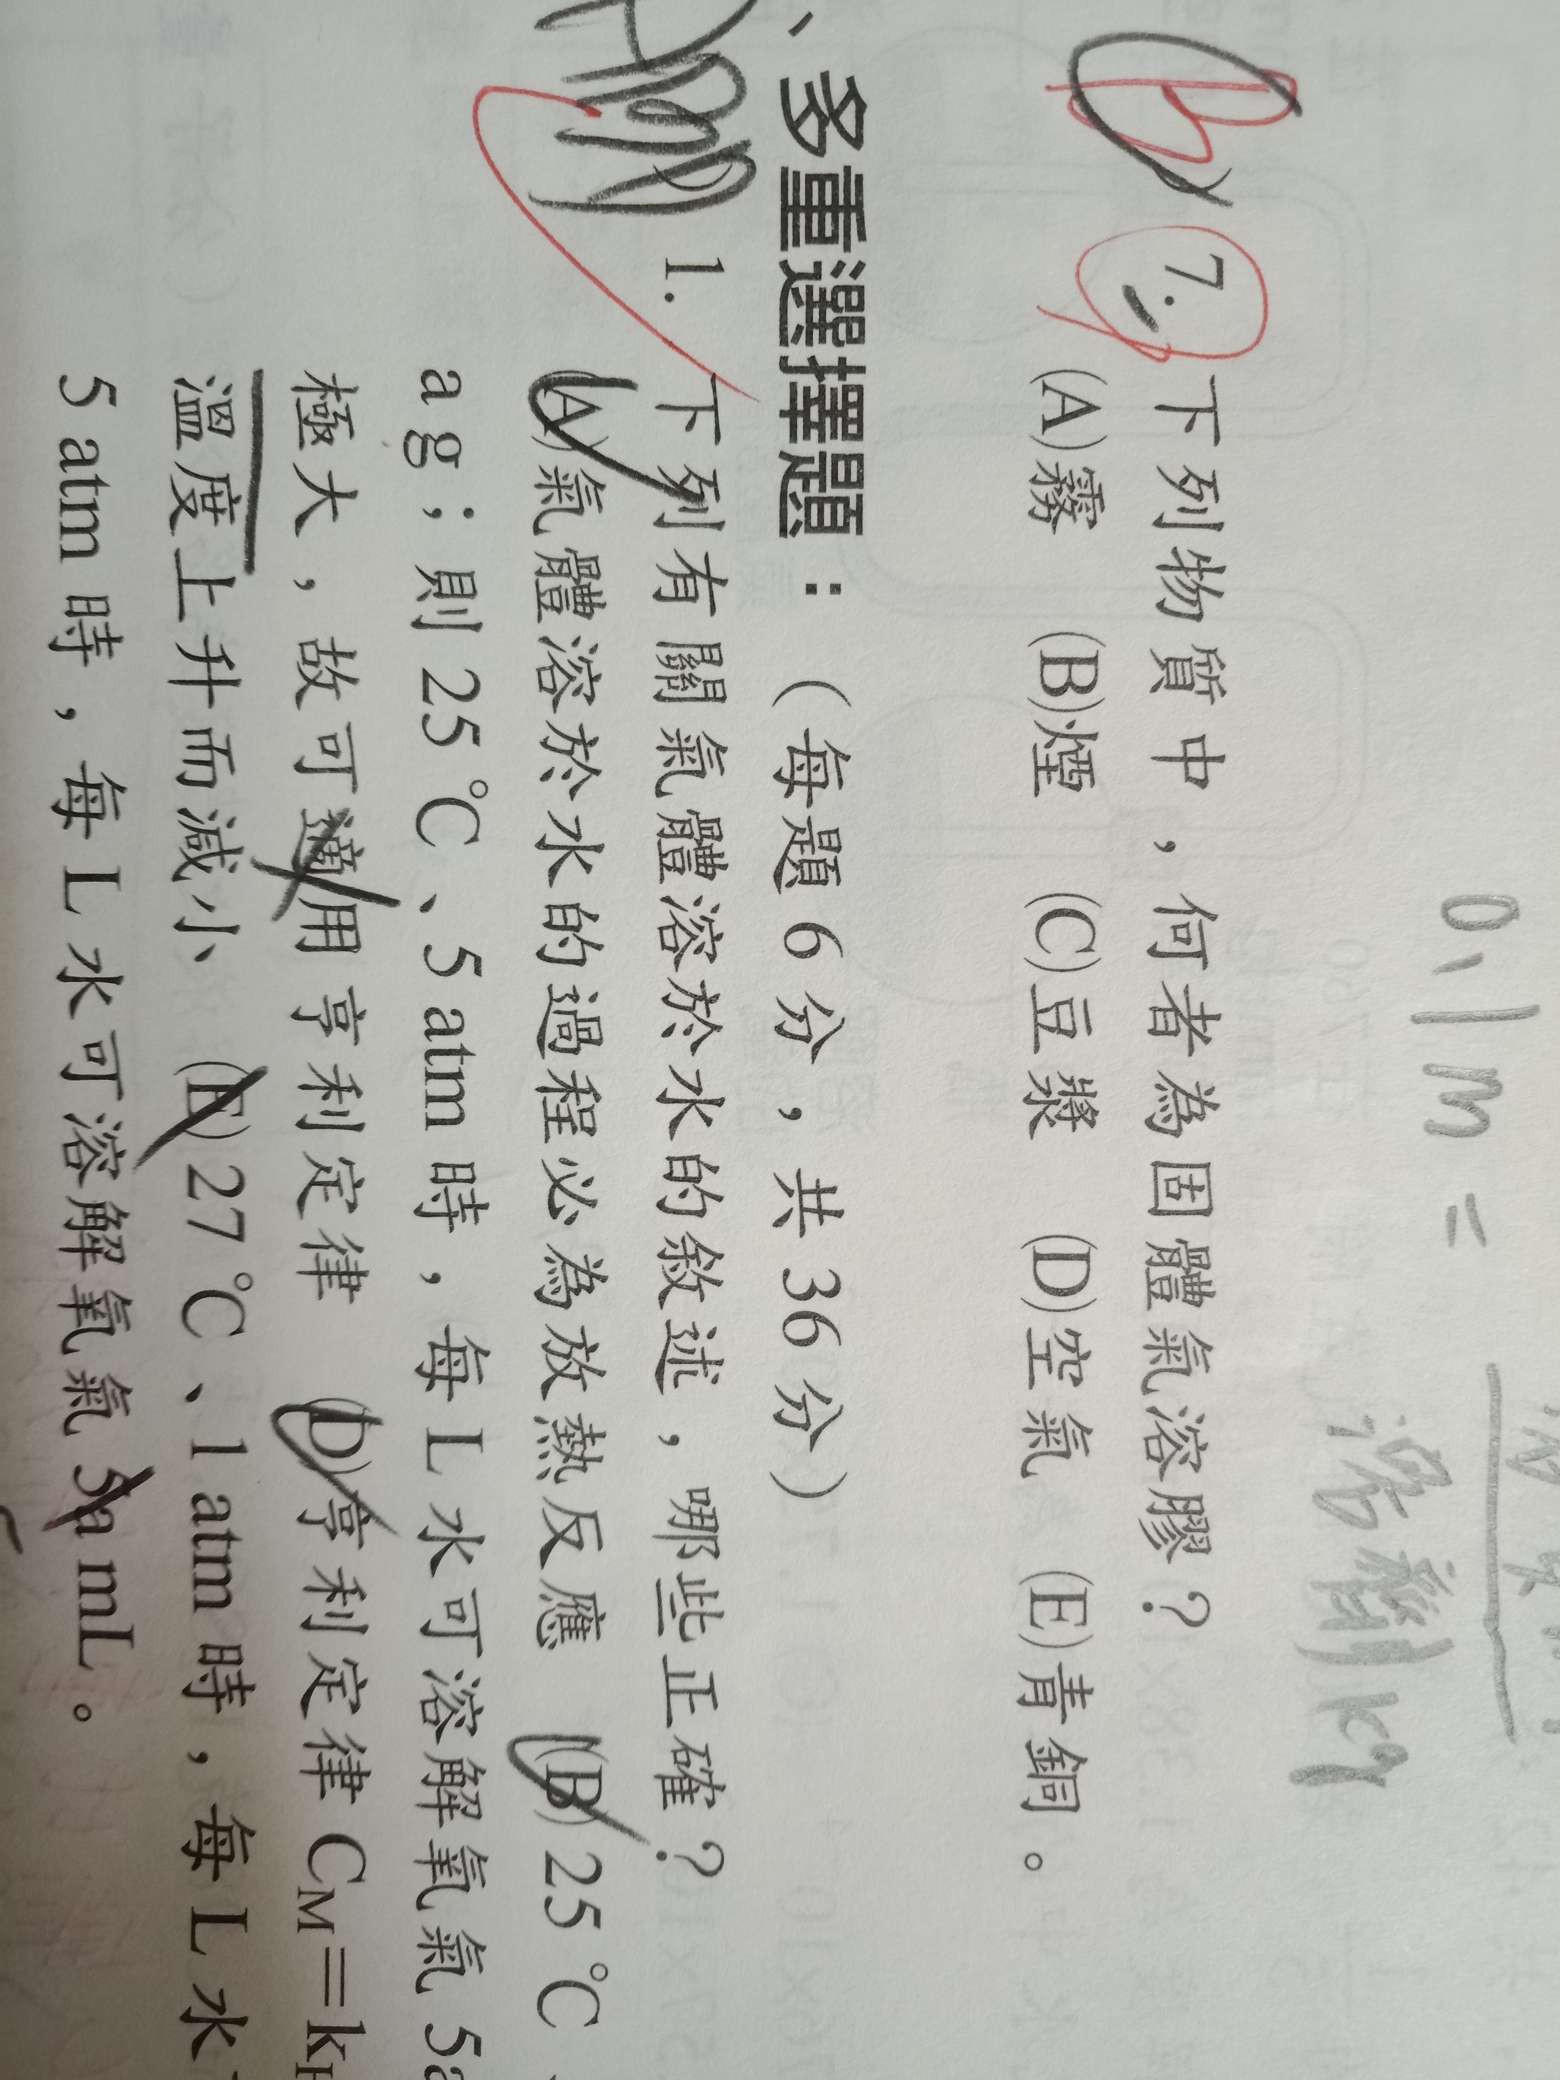 0.1 m =
溶劑 kg
B 7. 下列物質中，何者為固體氣溶膠？
(A)霧 (B)煙 (C)豆漿 (D)空氣 (E)青銅。
、多重選擇題：（每題 6 分，共 36 分）
ABD 1. 下列有關氣體溶於水的敘述，哪些正確？
(A)氣體溶於水的過程必為放熱反應 (B) 25 ℃、
a g；則 25 ℃、5 atm 時，每 L 水可溶解氧氣 5a
極大，故可適用亨利定律 (D)亨利定律 CM＝k
溫度上升而減小 (E) 27 ℃、1 atm 時，每 L 水
5 atm 時，每 L 水可溶解氧氣 5a mL。